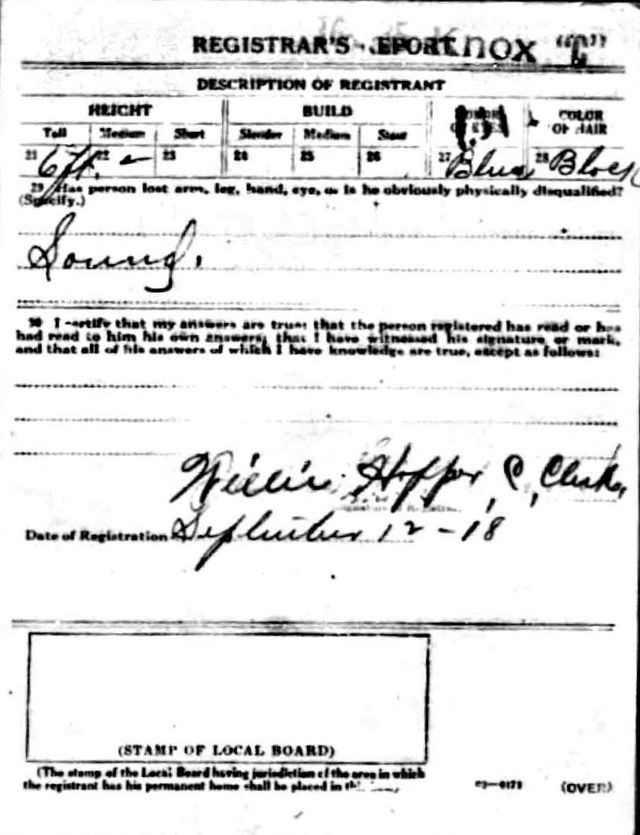 REGISTRAR'S REPORT Knox
DESCRIPTION OF REGISTRANT
HEIGHT BUILD COLOR OF EYES COLOR OF HAIR
Tall Medium Short Slender Medium Stout
21 6 ft. 22 – 23 24 25 26 27 Blue 28 Black
29 Has person lost arm, leg, hand, eye, or is he obviously physically disqualified?
(Specify.)
Sound.
30 I certify that my answers are true; that the person registered has read or has
had read to him his own answers; that I have witnessed his signature or mark,
and that all of his answers of which I have knowledge are true, except as follows:
Willis Hopper, C, Clerk,
Date of Registration September 12-18
(STAMP OF LOCAL BOARD)
(The stamp of the Local Board having jurisdiction of the area in which
the registrant has his permanent home shall be placed in
03—6171 (OVER)